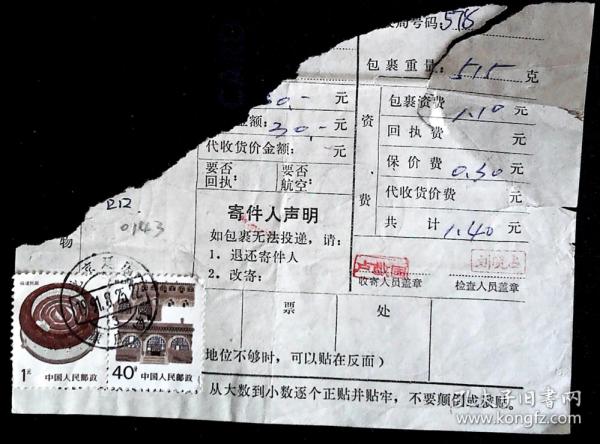 局号码：578
包裹重量：515 克
0,- 元
包裹资费 1.10 元
金额：30,- 元
回执费 元
代收货价金额： 元
保价费 0.30 元
要否回执： 要否航空：
资费
代收货价费 元
共计 1.40 元
212
0143
物
寄件人声明
如包裹无法投递，请：
1．退还寄件人
2．改寄：
收寄人员盖章
检查人员盖章
票 处
福建民居
1元
中国人民邮政
40分
中国人民邮政
地位不够时，可以贴在反面）
从大数到小数逐个正贴并贴牢，不要颠倒或
孔夫子旧书网
kongfz.com